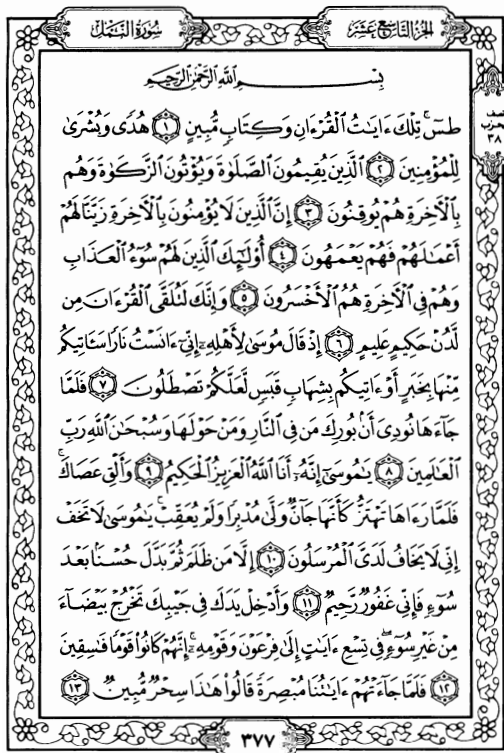 سُورَةُ النَّمْلِ
الجُزْءُ التَّاسِعَ عَشَرَ
بِسْمِ اللَّهِ الرَّحْمَٰنِ الرَّحِيمِ
طسٓۚ تِلْكَ ءَايَٰتُ الْقُرْءَانِ وَكِتَابٍ مُّبِينٍ ١ هُدًى وَبُشْرَىٰ
لِلْمُؤْمِنِينَ ٢ الَّذِينَ يُقِيمُونَ الصَّلَوٰةَ وَيُؤْتُونَ الزَّكَوٰةَ وَهُم
بِالْءَاخِرَةِ هُمْ يُوقِنُونَ ٣ إِنَّ الَّذِينَ لَا يُؤْمِنُونَ بِالْءَاخِرَةِ زَيَّنَّا لَهُمْ
أَعْمَٰلَهُمْ فَهُمْ يَعْمَهُونَ ٤ أُوْلَٰٓئِكَ الَّذِينَ لَهُمْ سُوٓءُ الْعَذَابِ
وَهُمْ فِي الْءَاخِرَةِ هُمُ الْأَخْسَرُونَ ٥ وَإِنَّكَ لَتُلَقَّى الْقُرْءَانَ مِن
لَّدُنْ حَكِيمٍ عَلِيمٍ ٦ إِذْ قَالَ مُوسَىٰ لِأَهْلِهِۦٓ إِنِّيٓ ءَانَسْتُ نَارًا سَـَٔاتِيكُم
مِّنْهَا بِخَبَرٍ أَوْ ءَاتِيكُم بِشِهَابٍ قَبَسٍ لَّعَلَّكُمْ تَصْطَلُونَ ٧ فَلَمَّا
جَآءَهَا نُودِيَ أَنۢ بُورِكَ مَن فِي النَّارِ وَمَنْ حَوْلَهَا وَسُبْحَٰنَ اللَّهِ رَبِّ
الْعَٰلَمِينَ ٨ يَٰمُوسَىٰٓ إِنَّهُۥٓ أَنَا اللَّهُ الْعَزِيزُ الْحَكِيمُ ٩ وَأَلْقِ عَصَاكَۚ
فَلَمَّا رَءَاهَا تَهْتَزُّ كَأَنَّهَا جَآنٌّ وَلَّىٰ مُدْبِرًا وَلَمْ يُعَقِّبْۚ يَٰمُوسَىٰ لَا تَخَفْ
إِنِّي لَا يَخَافُ لَدَيَّ الْمُرْسَلُونَ ١٠ إِلَّا مَن ظَلَمَ ثُمَّ بَدَّلَ حُسْنًۢا بَعْدَ
سُوٓءٍ فَإِنِّي غَفُورٌ رَّحِيمٌ ١١ وَأَدْخِلْ يَدَكَ فِي جَيْبِكَ تَخْرُجْ بَيْضَآءَ
مِنْ غَيْرِ سُوٓءٍۖ فِي تِسْعِ ءَايَٰتٍ إِلَىٰ فِرْعَوْنَ وَقَوْمِهِۦٓۚ إِنَّهُمْ كَانُوا۟ قَوْمًا فَٰسِقِينَ
١٢ فَلَمَّا جَآءَتْهُمْ ءَايَٰتُنَا مُبْصِرَةً قَالُوا۟ هَٰذَا سِحْرٌ مُّبِينٌ ١٣
الحِزْب
٣٨
٣٧٧